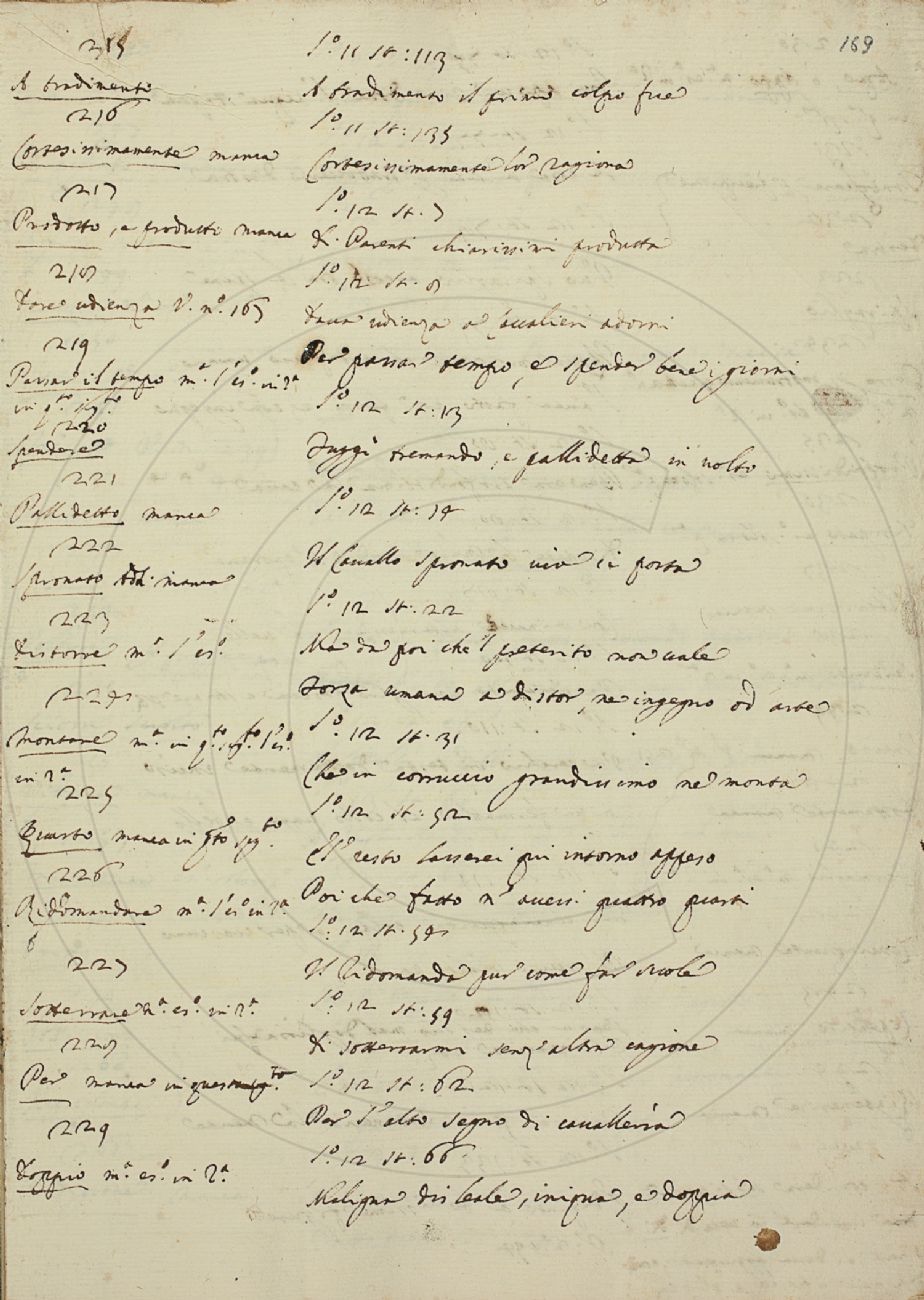 169
215
A tradimento
216
Cortesissimamente manca
217
Prodotto, e produtto manca
218
Dare udienza V. n.º 165
219
Passar il tempo m.ª l'es.º in 2.ª
in q.to sig.to
220
Spendere
221
Pallidetto manca
222
Spronato Add. manca
223
Distorre m.ª l'es.º
224
Montare m.ª in q.to sig.to l'es.º
in 2.ª
225
Quarto manca in q.to sig.to
226
Ridomandare m.ª l'es.º in 2.ª
227
Sotterrare m.ª es.º in 2.ª
228
Per manca in questo sig.to
229
Doppio m.ª es.º in 2.ª
C.º 11 st: 113
A tradimento il primo colpo fue
C.º 11 st: 135
Cortesissimamente lor ragiona
C.º 12 st. 7
Di Parenti chiarissimi produtta
C.º 12 st. 8
Dava udienza a Cavalieri adorni
Per passar tempo, e spender bene i giorni
C.º 12 st: 13
Fuggì tremando, e pallidetta in volto
C.º 12 st: 14
Il Cavallo spronato via si porta
C.º 12 st: 22
Ma da poi che 'l preterito non vale
Forza umana a distor, ne ingegno od arte
C.º 12 st: 31
Che in corruccio grandissimo ne monta
C.º 12 st: 52
E 'l resto lasserei qui intorno appeso
Poi che fatto n' avessi quattro quarti
C.º 12 st: 54
Il Ridomanda pur come far suole
C.º 12 st: 59
Di sotterrarmi senz' altra cagione
C.º 12 st: 62
Per l' alto segno di cavalleria
C.º 12 st: 66
Maligna disleale, iniqua, e doppia